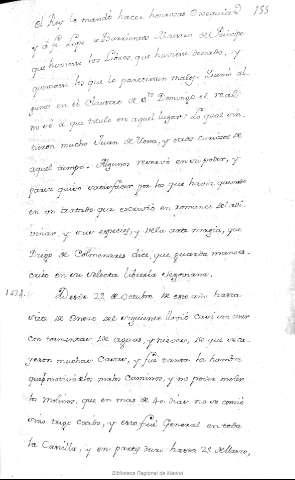 155
el Rey le mandó hacer honrosas Exequias,
y á Fr. Lope de Barrientos Maestro del Principe
que huviese los Libros, que huviese dexado, y
quemase los que le pareciesen malos. Quemó al
gunos en el Claustro de Sto. Domingo el real
no sé a que titulo en aquel lugar. Lo qual sin-
tieron mucho Juan de Mena, y otros curiosos de
aquel tiempo. Algunos reservó en su poder, y
para quien satisfacer por los que havia quemado
en un tratado que escrivió en romance del adi
vinar, y sus especies, y de la arte magia, que
Diego de Colmenares dice, que guarda manus-
crito en su selecta libreria Segoviana.
1434. Desde 29 de Octubre de este año hasta
siete de Enero del siguiente llovió casi sin cesar
con tormentas de aguas, y nieves, de que se ca-
yeron muchas Casas, y fué tanta la hambre
que por los malos Caminos, y no poder moler
los molinos, que en mas de 40 dias no se comió
sino trigo cocido, y esto fué General en toda
la Castilla, y en partes duró hasta 25 de Marzo,
Biblioteca Regional de Madrid